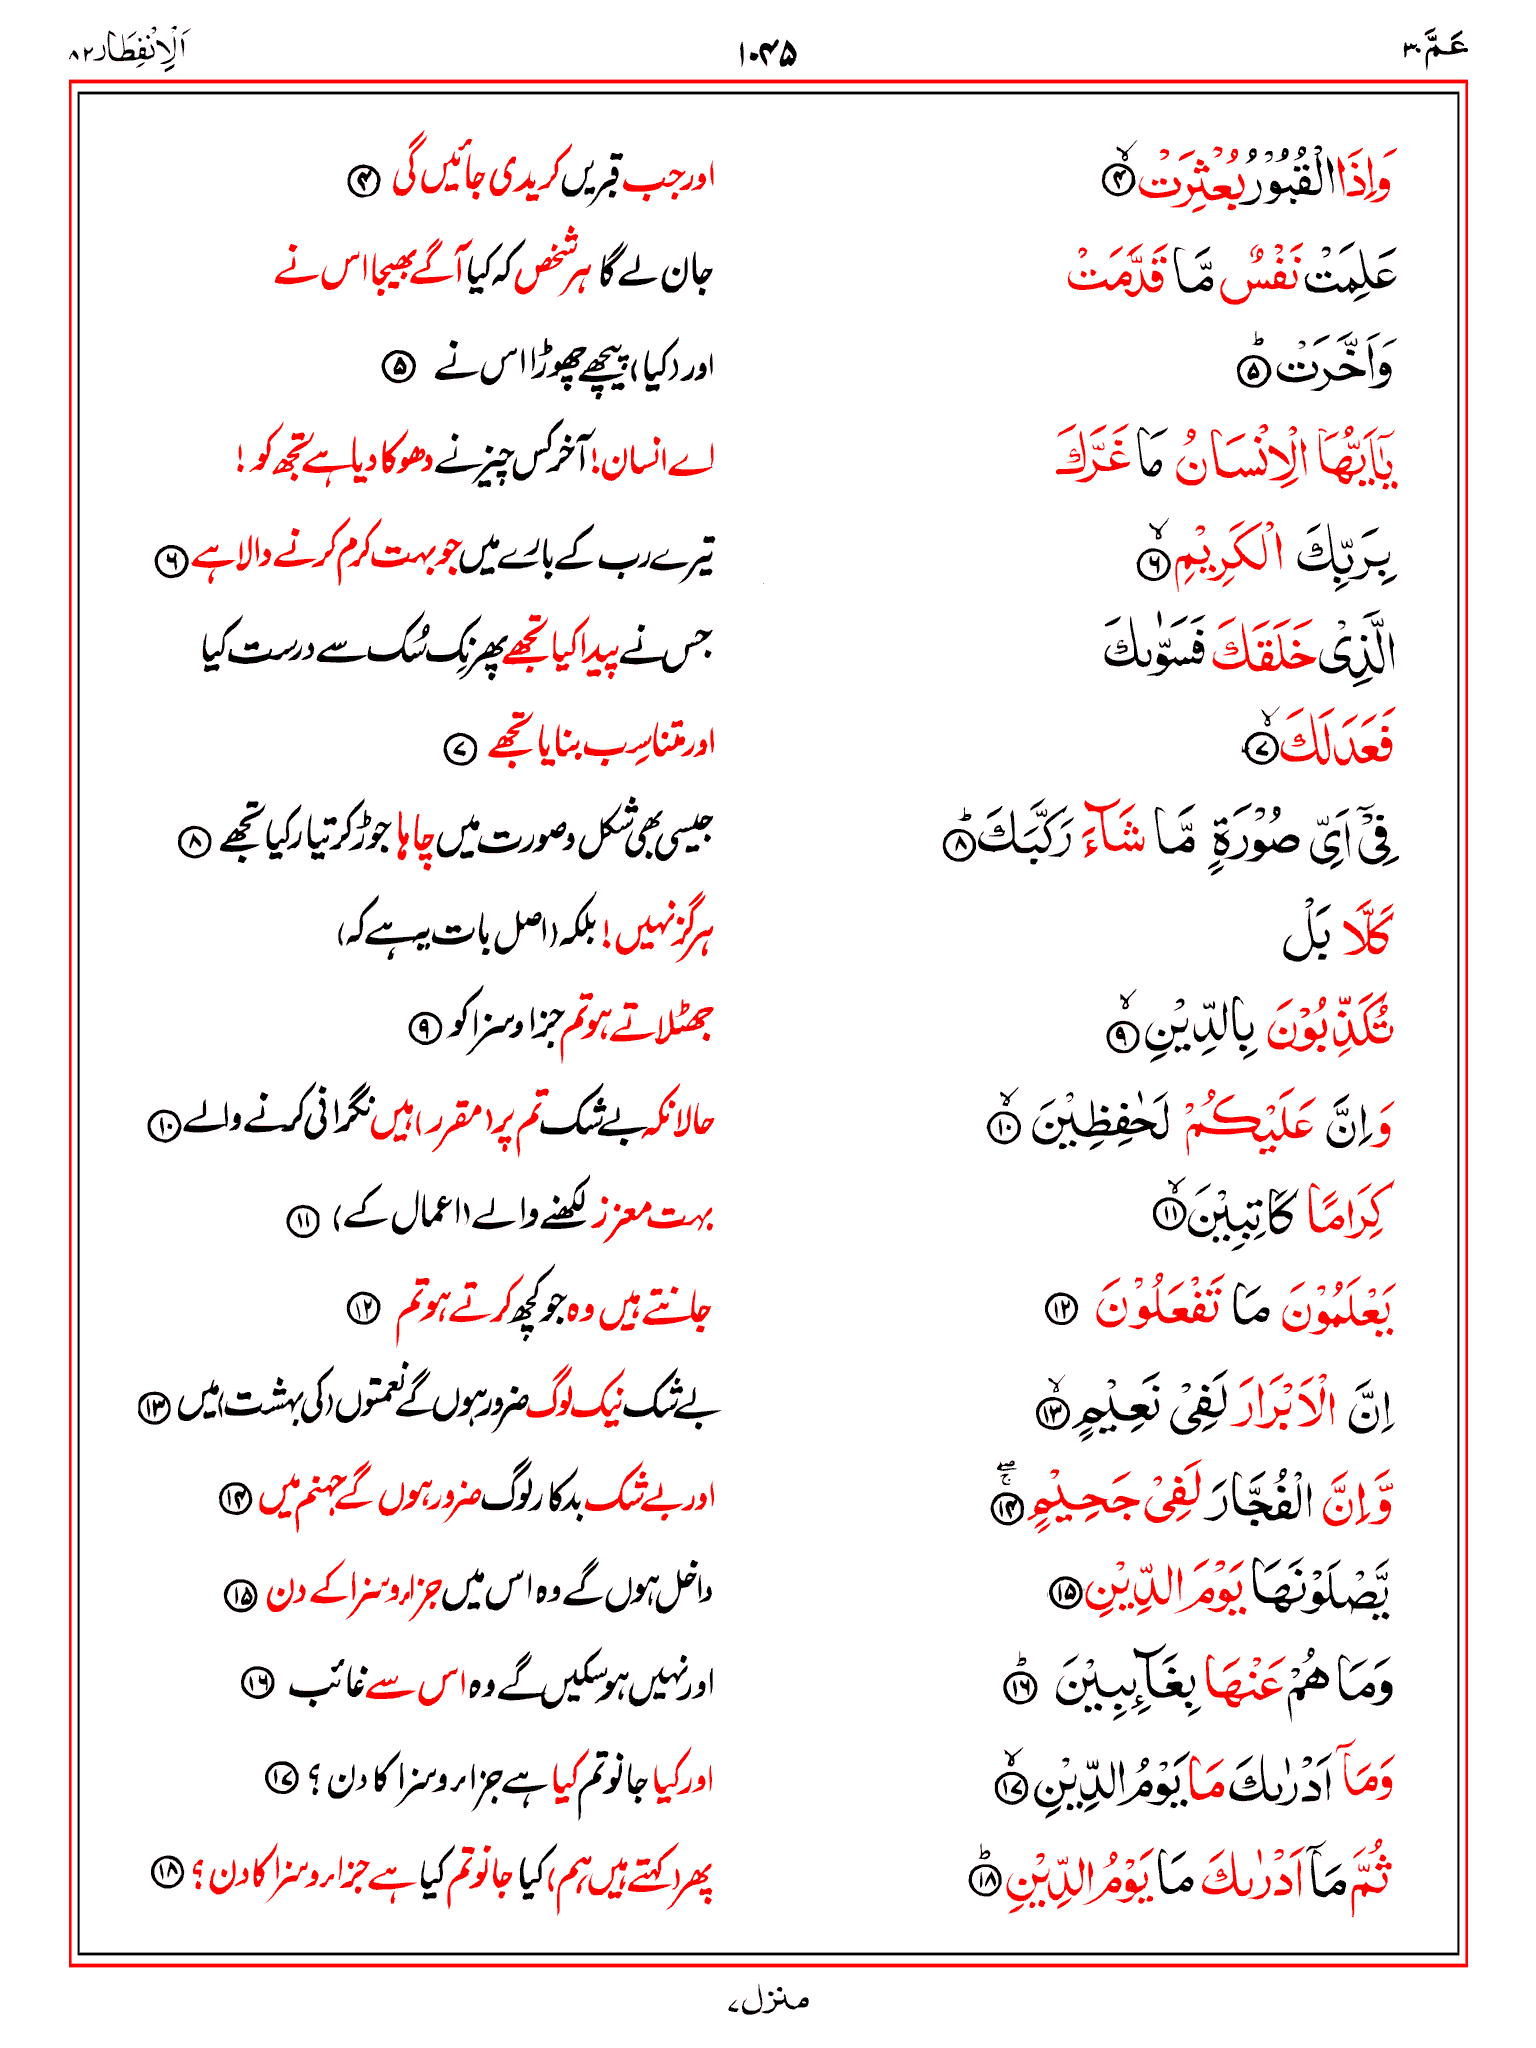 عَمَّ ۳۰ ۱۰۴۵ اَلْاِنْفِطَار ۸۲
وَاِذَا الْقُبُوْرُ بُعْثِرَتْ ۙ﴿۴﴾ اور جب قبریں کریدی جائیں گی ﴿۴﴾
عَلِمَتْ نَفْسٌ مَّا قَدَّمَتْ جان لے گا ہر شخص کہ کیا آگے بھیجا اس نے
وَاَخَّرَتْ ؕ﴿۵﴾ اور (کیا) پیچھے چھوڑا اس نے ﴿۵﴾
يٰۤاَيُّهَا الْاِنْسَانُ مَا غَرَّكَ اے انسان! آخر کس چیز نے دھوکا دیا ہے تجھ کو!
بِرَبِّكَ الْكَرِيْمِ ۙ﴿۶﴾ تیرے رب کے بارے میں جو بہت کرم کرنے والا ہے ﴿۶﴾
الَّذِيْ خَلَقَكَ فَسَوّٰىكَ جس نے پیدا کیا تجھے پھر نِک سُک سے درست کیا
فَعَدَلَكَ ۙ﴿۷﴾ اور متناسِب بنایا تجھے ﴿۷﴾
فِيْۤ اَيِّ صُوْرَةٍ مَّا شَآءَ رَكَّبَكَ ؕ﴿۸﴾ جیسی بھی شکل و صورت میں چاہا جوڑ کر تیار کیا تجھے ﴿۸﴾
كَلَّا بَلْ ہرگز نہیں! بلکہ (اصل بات یہ ہے کہ)
تُكَذِّبُوْنَ بِالدِّيْنِ ۙ﴿۹﴾ جھٹلاتے ہو تم جزا و سزا کو ﴿۹﴾
وَاِنَّ عَلَيْكُمْ لَحٰفِظِيْنَ ۙ﴿۱۰﴾ حالانکہ بے شک تم پر (مقرر) ہیں نگرانی کرنے والے ﴿۱۰﴾
كِرَامًا كَاتِبِيْنَ ۙ﴿۱۱﴾ بہت معزز لکھنے والے (اعمال کے) ﴿۱۱﴾
يَعْلَمُوْنَ مَا تَفْعَلُوْنَ ﴿۱۲﴾ جانتے ہیں وہ جو کچھ کرتے ہو تم ﴿۱۲﴾
اِنَّ الْاَبْرَارَ لَفِيْ نَعِيْمٍ ۙ﴿۱۳﴾ بے شک نیک لوگ ضرور ہوں گے نعمتوں (کی بہشت) میں ﴿۱۳﴾
وَّاِنَّ الْفُجَّارَ لَفِيْ جَحِيْمٍ ۖۚ﴿۱۴﴾ اور بے شک بدکار لوگ ضرور ہوں گے جہنم میں ﴿۱۴﴾
يَّصْلَوْنَهَا يَوْمَ الدِّيْنِ ﴿۱۵﴾ داخل ہوں گے وہ اس میں جزاء و سزا کے دن ﴿۱۵﴾
وَمَا هُمْ عَنْهَا بِغَآىِٕبِيْنَ ؕ﴿۱۶﴾ اور نہیں ہو سکیں گے وہ اس سے غائب ﴿۱۶﴾
وَمَاۤ اَدْرٰىكَ مَا يَوْمُ الدِّيْنِ ۙ﴿۱۷﴾ اور کیا جانو تم کیا ہے جزاء و سزا کا دن؟ ﴿۱۷﴾
ثُمَّ مَاۤ اَدْرٰىكَ مَا يَوْمُ الدِّيْنِ ؕ﴿۱۸﴾ پھر (کہتے ہیں ہم) کیا جانو تم کیا ہے جزاء و سزا کا دن؟ ﴿۱۸﴾
منزل ۷